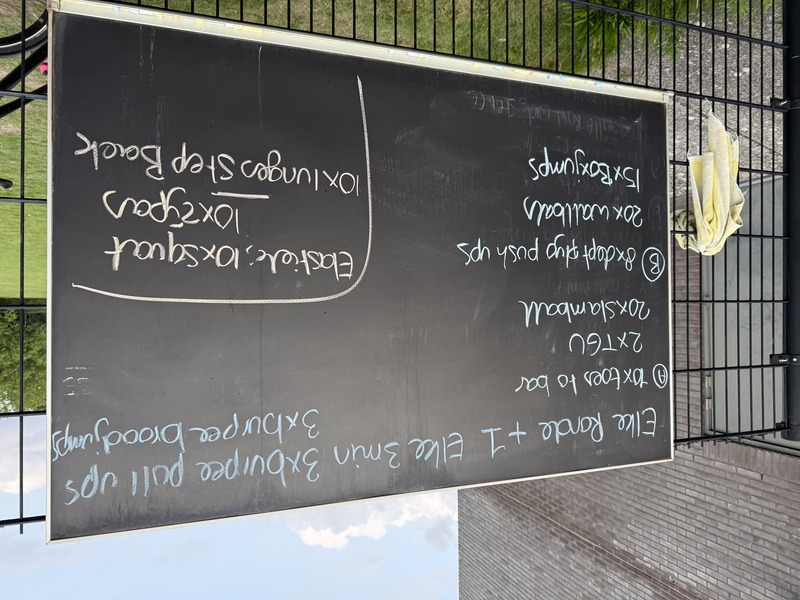 Elke Ronde +1 Elke 3min 3xburpee pull ups
3xburpee broadjumps
Ⓐ 10x toes to bar
2xTGU
20xslamball
Ⓑ 8xdept plyo push ups
20x wallballs
15x Boxjumps
Elastiek: 10xsquat
10x zijpas
10x lunges Step Back